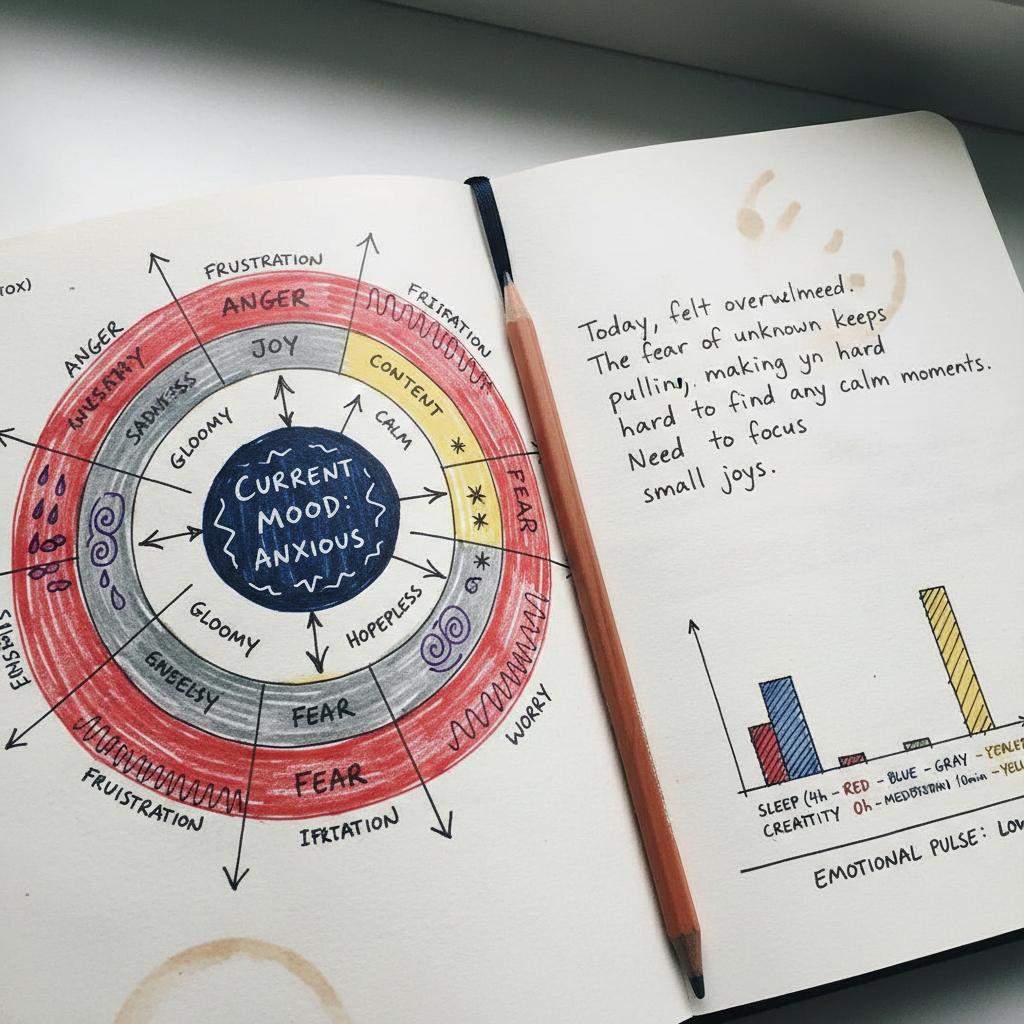 TOX)
FRUSTRATION
ANGER
FRIIFATION
ANGER
JOY
CONTENT
SADNESS
GLOOMY
CALM
FEAR
CURRENT
MOOD:
ANXIOUS
GLOOMY
HOPEPLESS
ENEELSY
FEAR
WORRY
FEAR
FRUISTRATION
Today, felt overwlmeed.
The fear of unknown keeps
pullin, making yn hard
hard to find any calm moments.
Need to focus
small joys.
SLEEP (4h - RED - BLUE - GRAY
CREATTITY 0h - 10min
EMOTIONAL PULSE: LOW